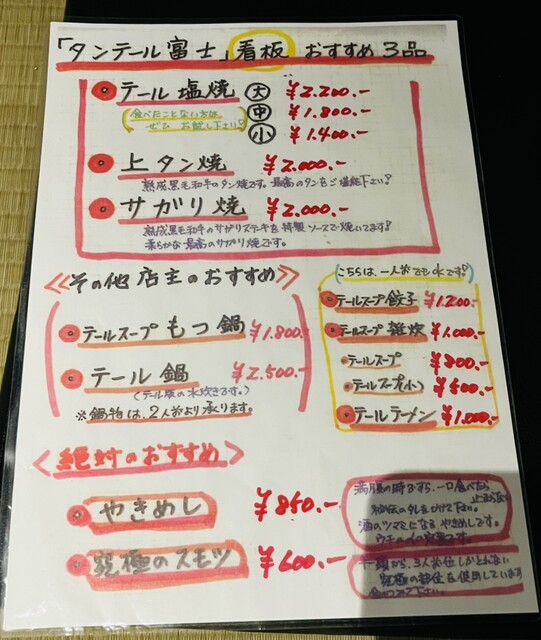 「タンテール富士」看板 おすすめ3品
テール塩焼 大 ¥2.200.-
中 ¥1.800.-
小 ¥1.400.-
食べたことない方は
ぜひ お試し下さい!
上タン焼 ¥2.000.-
熟成黒毛和牛のタン焼です。最高のタンをご堪能下さい!
サガリ焼 ¥2.000.-
熟成黒毛和牛のサガリステーキを特製ソースで焼いてます!
柔らかな最高のサガリ焼です。
《その他店主のおすすめ》
テールスープもつ鍋 ¥1.800.-
テール鍋 ¥2.500.-
※鍋物は、2人前より承ります。
こちらは、一人前でもOKです!
テールスープ餃子 ¥1.200.-
テールスープ雑炊 ¥1.000.-
テールスープ ¥800.-
テールスープ(小)
テールラーメン ¥1.000.-
〈絶対のおすすめ〉
やきめし ¥850.-
満腹の時ですら、一口食べたら
秘伝のタレをかけて下さい。
酒のツマミになる やきめしです。
究極のスモツ ¥600.-
一頭から、3人前位しかとれない
究極の部位を使用しています